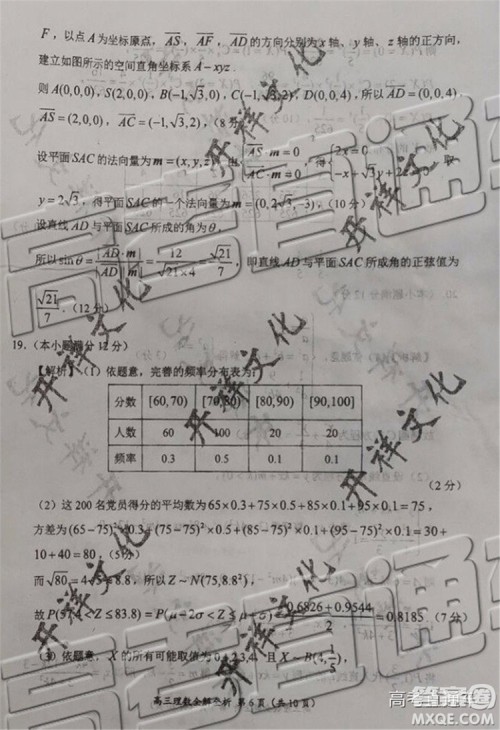 F，以点A为坐标原点，AS，AF，AD的方向分别为x轴、y轴、z轴的正方向，
建立如图所示的空间直角坐标系A-xyz
则A(0,0,0), S(2,0,0), B(-1,√3,0), C(-1,√3,2), D(0,0,4)，所以AD=(0,0,4)，
AS=(2,0,0)，AC=(-1,√3,2)，(8分)
设平面SAC的法向量为m=(x,y,z)，由{AS·m=0 AC·m=0，得{2x=0 -x+√3y+2z=0，取
y=2√3，得平面SAC的一个法向量为m=(0,2√3,-3)，(10分)
设直线AD与平面SAC所成的角为θ，
所以sinθ=|AD·m|/|AD||m|=12/(√21×4)=√21/7，即直线AD与平面SAC所成角的正弦值为
√21/7．(12分)
19.（本小题满分12分）
【解析】(1) 依题意，完善的频率分布表为：
分数 [60,70) [70,80) [80,90) [90,100]
人数 60 100 20 20
频率 0.3 0.5 0.1 0.1
(2分)
(2) 这200名党员得分的平均数为65×0.3+75×0.5+85×0.1+95×0.1=75，
方差为(65-75)²×0.3+(75-75)²×0.5+(85-75)²×0.1+(95-75)²×0.1=30+
10+40=80，(5分)
而√80=4√5≈8.8，所以Z~N(75,8.8²)，
故P(57.4<Z≤83.8)=P(μ-2σ<Z≤μ+σ)=(0.6826+0.9544)/2=0.8185 (7分)
(3) 依题意，X的所有可能取值为0,1,2,3,4，且X~B(4,1/5)，
高三理数全解全析 第6页（共10页）
高考直通车
开祥文化
开祥文化
开祥文化
开祥文化
高考直通车
答案圈
MXQE.COM